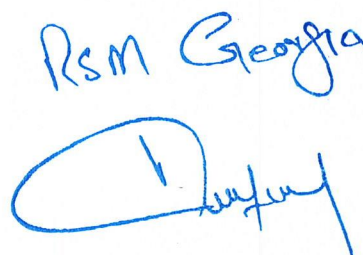 RSM Georgia